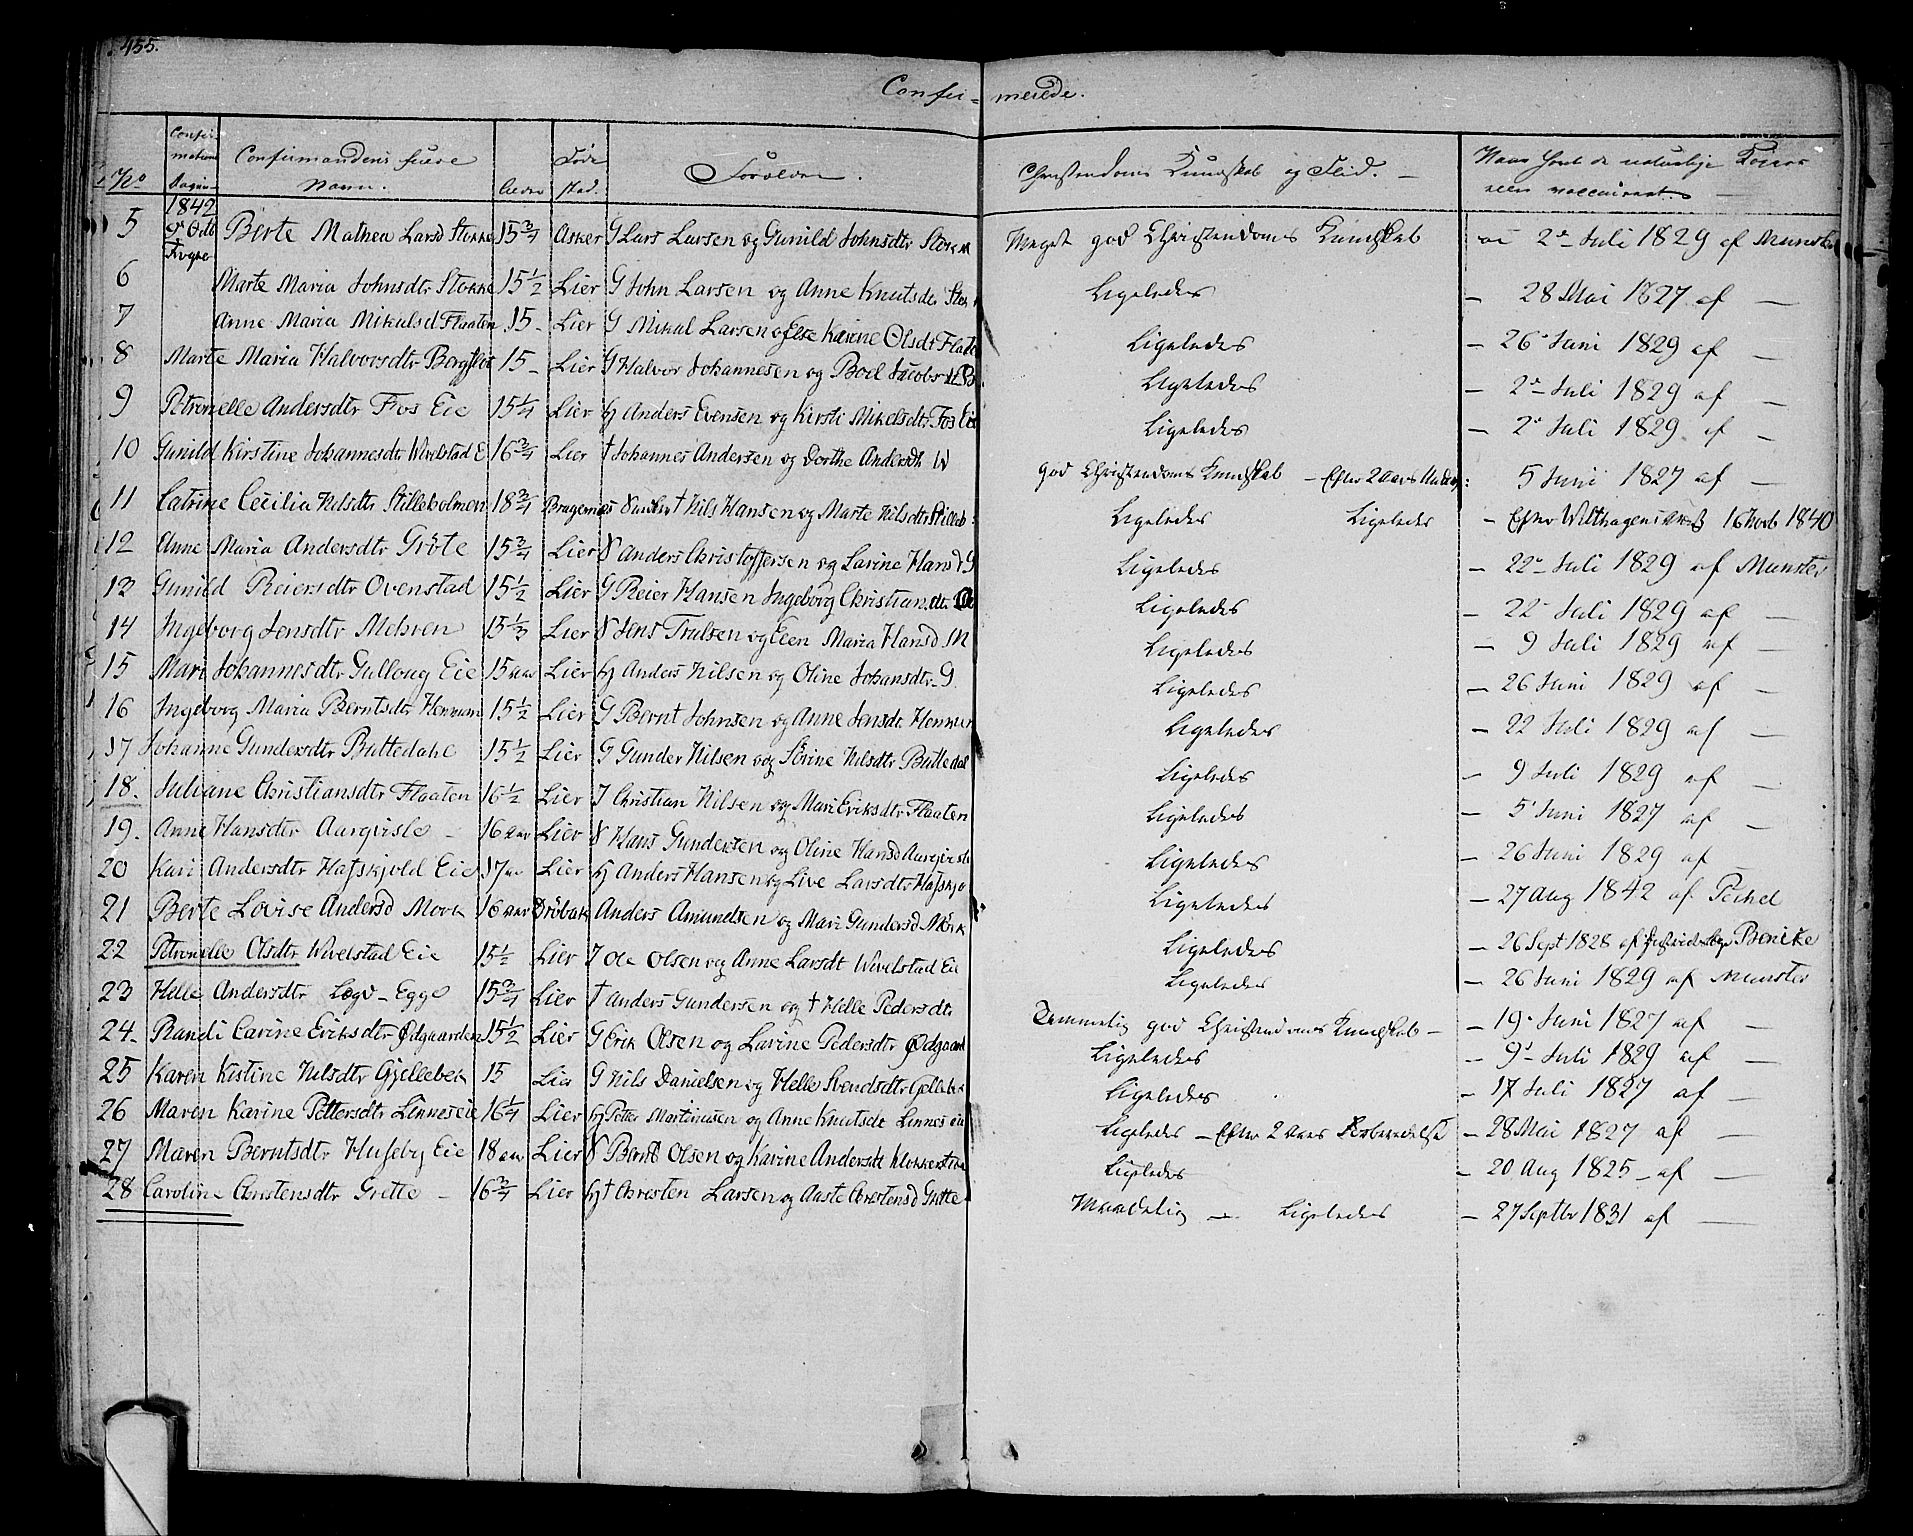 455.
Confir-merede.
No
Confirmations Dagen
Confirmandens fulde Navn.
Alder
Føde stad.
Forældre.
Christendoms Kundskab og Flid.
Naar havt de naturlige Kopper eller vaccineret.
1842
5 Berte Mathea Larsd Stokke 15 3/4 Asker G Lars Larsen og Gunild Johnsdtr Meget god Christendoms Kundskab 2 Juli 1829 af
6 Marte Maria Johnsdtr Stokke 15 1/2 Lier G John Larsen og Anne Knutsdr Ligeledes - 28 Mai 1827 af —
7 Anne Maria Mikulsd Flaaten 15 - Lier G Mikal Larsen og Else Karine Olsdr Ligeledes - 26 Juni 1829 af —
8 Marte Maria Halvorsdtr 15 - Lier G Halvor Johannesen og Boel Ligeledes - 2 Juli 1829 af —
9 Petronelle Andersdtr Fos Eie 15 1/4 Lier Anders Evensen og Kirsti Mikelsdtr Fos Eie Ligeledes - 2 Juli 1829 af —
10 Gunild Kirstine Johannesdtr Wivelstad E 16 3/4 Lier † Johannes Andersen og Dorthe Andersdtr W god Christendoms Kundskab - Efter 2 Aars 5 Juni 1827 af —
11 Catrine Cecilia Nilsdtr Stilleholmen 18 3/4 Bragernes † Nils Hansen og Marte Nilsdtr Ligeledes Ligeledes - Efter 1840
12 Anne Maria Andersdtr Grøte 15 3/4 Lier Anders Christoffersen og Larine Hansd G Ligeledes - 22 Juli 1829 af Munster
13 Gunild Reiersdtr Ovenstad 15 1/2 Lier G Reier Hansen Ingeborg Christiansdtr Ligeledes - 22 Juli 1829 af —
14 Ingeborg Jensdtr Mehren 15 1/3 Lier Jens Trulsen og Maria Hansd M Ligeledes - 9 Juli 1829 af —
15 Mari Johannesdtr Gullaug Eie 15 aar Lier Anders Nilsen og Oline Johansdtr G. Ligeledes - 26 Juni 1829 af —
16 Ingeborg Maria Berntsdtr 15 1/2 Lier G Bernt Johnsen og Anne Jensdr Ligeledes - 22 Juli 1829 af —
17 Johanne Gundersdtr Buttedahl 15 1/2 Lier G Gunder Nilsen og Sörine Nilsdtr Buttedal Ligeledes - 9 Juli 1829 af —
18. Juliane Christiansdtr Flaaten 16 1/2 Lier I Christian Nilsen og Mari Eriksdtr Flaaten Ligeledes - 5 Juni 1827 af —
19. Anne Hansdtr Aarqvisle - 16 aar Lier Hans Gundersen og Oline Hansd Ligeledes - 26 Juni 1829 af —
20 Kari Andersdtr Hafskjold Eie 17 Lier Anders Hansen og Live Larsdtr Ligeledes - 27 Aug 1842 af
21 Berte Lovise Andersd Mørk 16 aar Drøbak Anders Amundsen og Mari Gundersd Mörk Ligeledes - 26 Sept 1828 af
22 Petronelle Olsdtr Wivelstad Eie 15 1/2 Lier I Ole Olsen og Anne Larsdt Wivelstad Eie Ligeledes - 26 Juni 1829 af Munster
23 Helle Andersdtr Egge 15 3/4 Lier † Anders Gundersen og † Helle Pedersdtr Temmelig god Christendoms Kundskab - - 19 Juni 1827 af —
24. Randi Carine Eriksdtr Ødgaarden 15 1/2 Lier G Erik Olsen og Larine Pedersdtr Ødgaard Ligeledes - 9 Juli 1829 af —
25 Karen Kistine Nilsdtr Gjellebek 15 Lier G Nils Danielsen og Helle Svendsdtr Ligeledes - 17 Juli 1827 af —
26 Maren Karine Pettersdtr Linneseie 16 1/4 Lier Petter Martinusen og Anne Knutsdt Linnes eie Ligeledes - Efter 2 Aars Forberedelse - 28 Mai 1827 af —
27 Maren Berntsdtr Huseby Eie 18 aar Lier Bernt Olsen og Karine Andersdt Ligeledes - 20 Aug 1825 - af —
28 Caroline Christensdtr Grette - 16 3/4 Lier † Christen Larsen og Aaste Christensd Grette Maadelig - Ligeledes - 27 Septbr 1831 af —